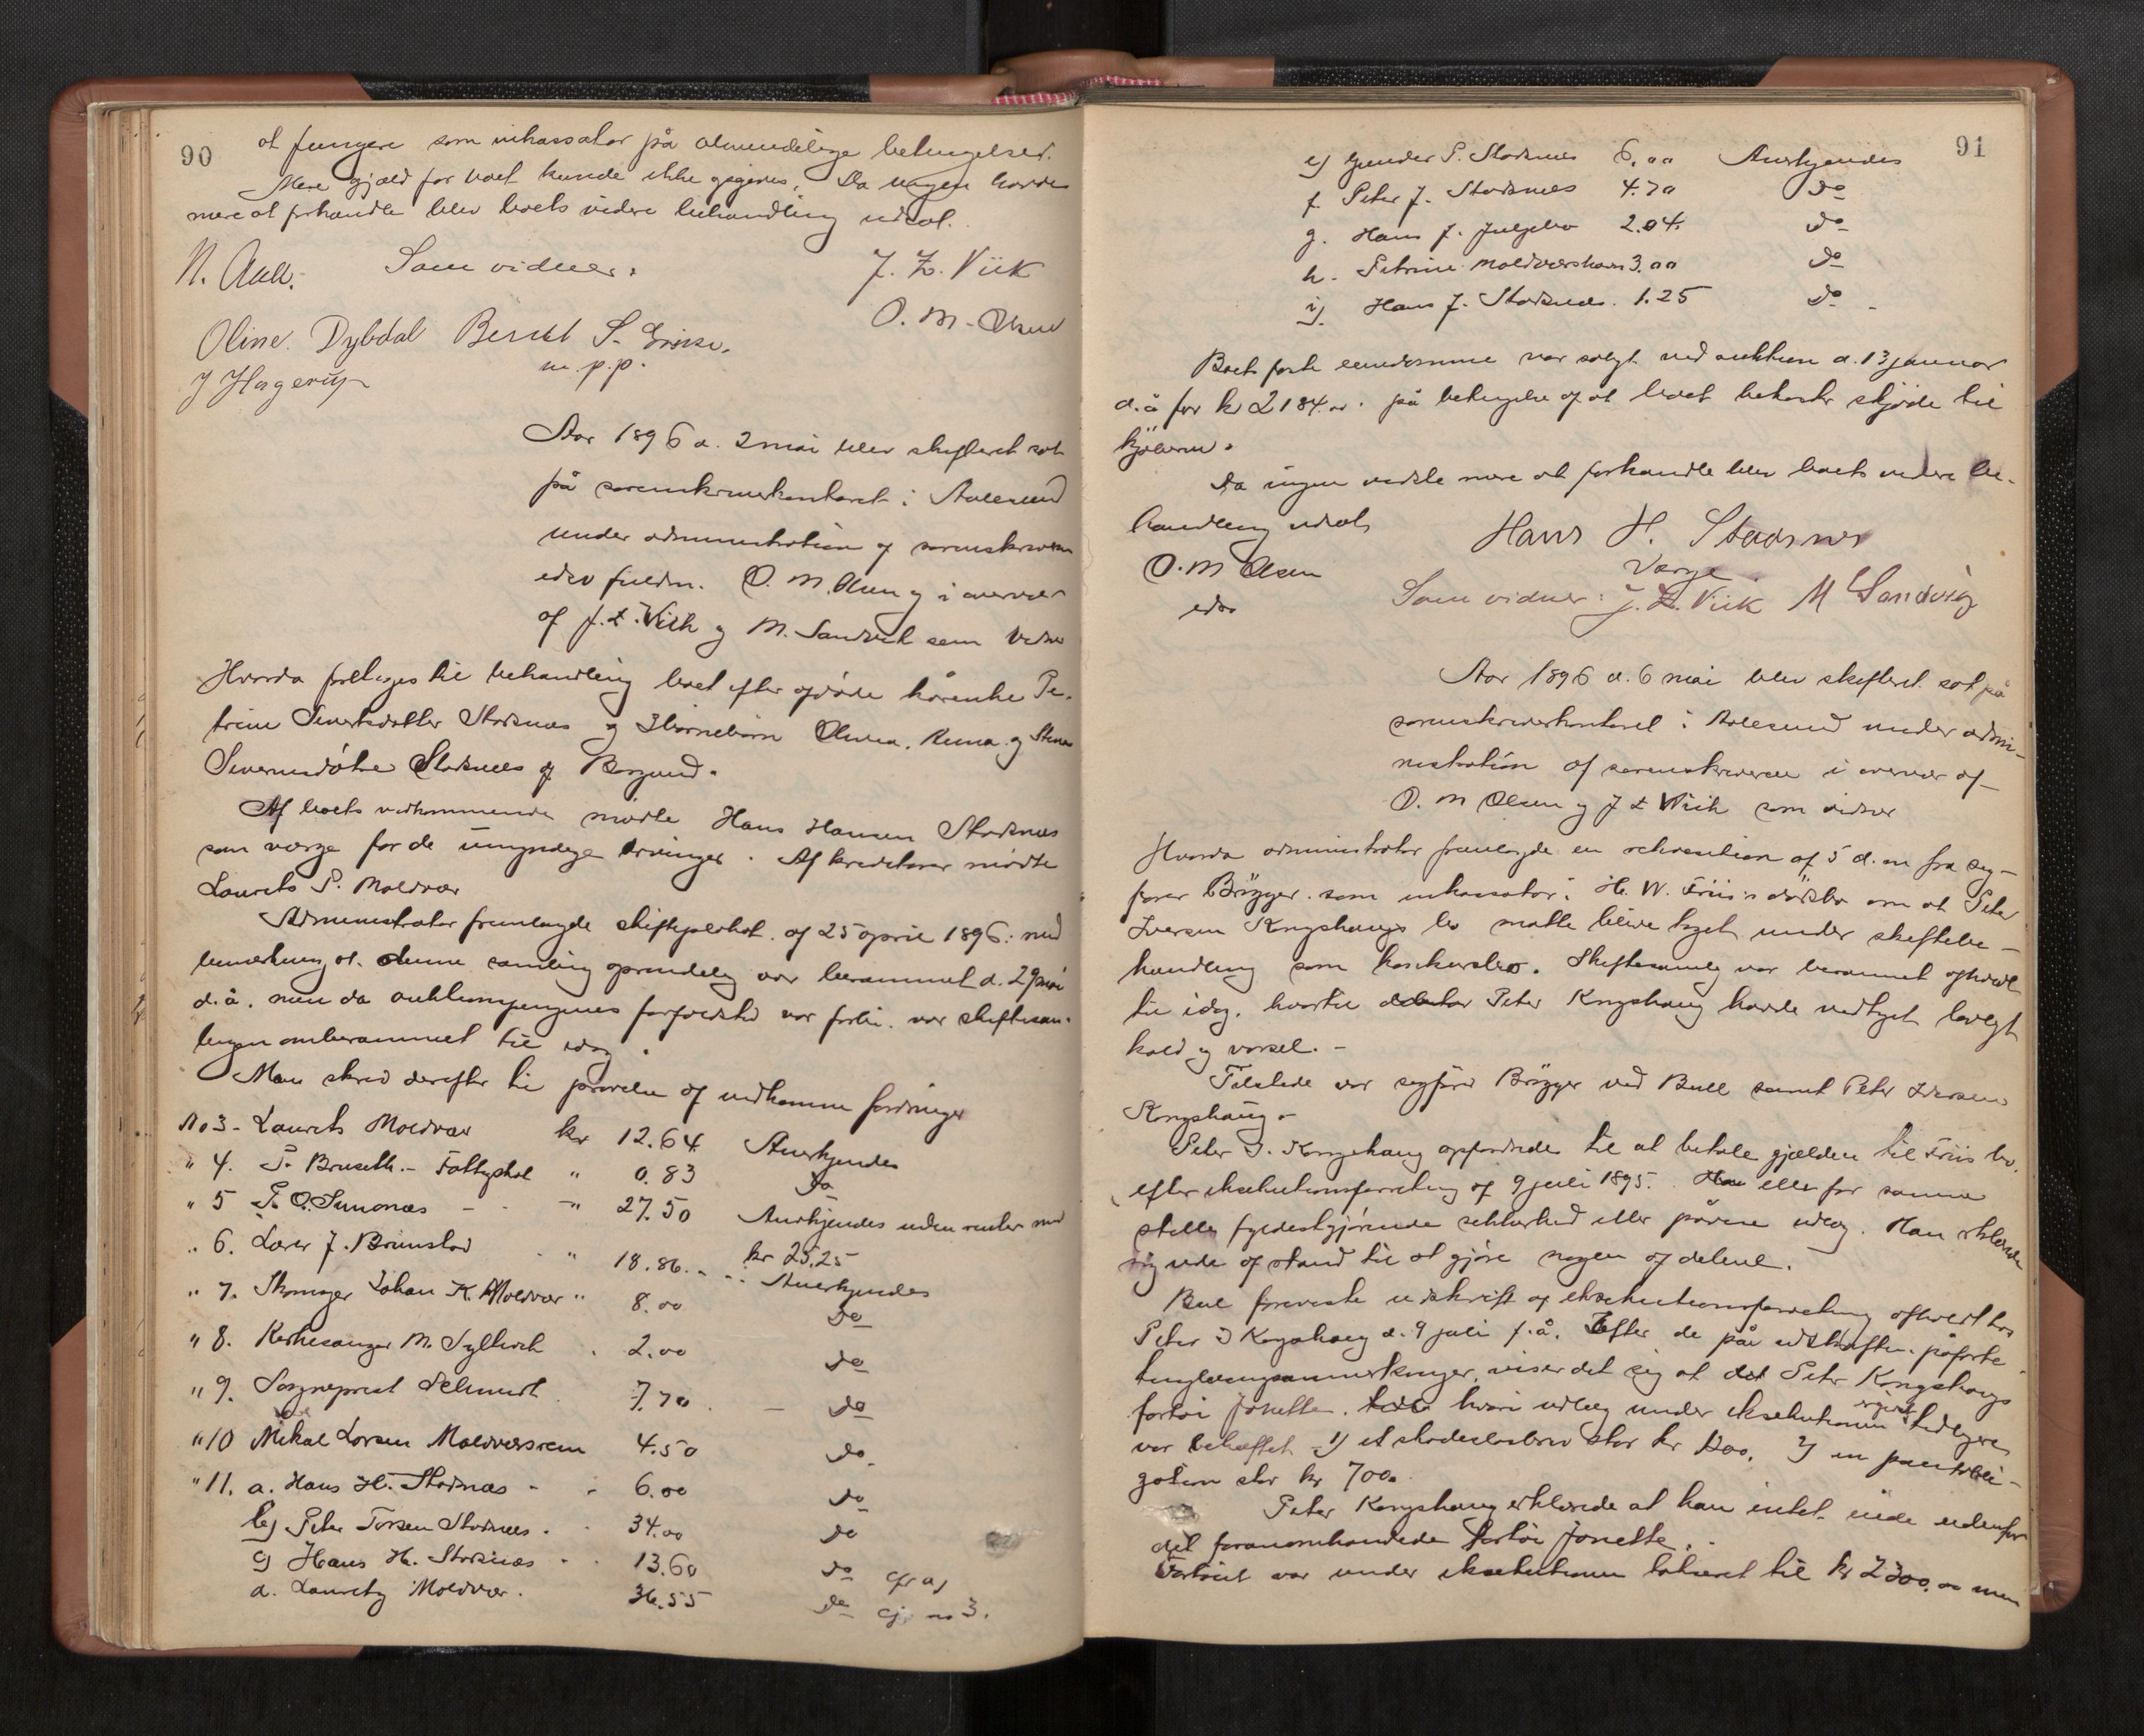 90
at fungere som inkassator på almindelige betingelser.
Mere gjæld for boet kunde ikke opgives. Da ingen havde
mere at forhandle blev boets videre behandling udsat.
N. Aall. Som vidner: J. L. Viik
O. M. Olsen
Oline Dybdal Bernt S.
m.p.p.
J Hagerup
Aar 1896 d. 2 mai blev skifteret sat
på sorenskriverkontoret i Aalesund
under administration af sorenskriveren
edsv fuldm. O. M. Olsen og i overvær
af J. L. Viik og M. Sandvik som vidner
Hvorda foretoges til behandling boet efter afdøde kårenke Pe-
trine Sivertsdatter Stadsnæs og Olivia, Anna og
Severinsdøtre Stadsnæs af Borgund.
Af boets vedkommende mødte Hans Hansen Stadsnæs
som værge for de umyndige arvinger. Af kreditorer mødte
Laurits P. Moldvær
Administrator fremlagde skifteplakat af 25 april 1896: med
bemærkning at denne samling oprindelig var berammet d. 29 mai
d.å. men da auktionspengenes forfaldstid var forbi, var skiftesam-
lingen omberammet til idag.
Man skred derefter til prøvelse af indkomne fordringer
No 3 - Laurits Moldvær kr 12.64. Anerkjendes
" 4. P. Bruseth - Fattigskat " 0.83 do
" 5 P. O. Sunonæs - " 27.50 Anerkjendes uden renter med
kr 25.25
" 6. Lærer J. Brunstad " 18.86. - Anerkjendes
" 7. Skomager Johan K. Moldvær " 8.00 do
" 8. Kirkesanger M. Sylterik . 2.00 do
" 9. Sogneprest Schmidt 7.70 - do
" 10 Mikal Larsen Moldværsrem 4.50 do.
" 11. a. Hans H. Stadsnæs - - 6.00 do
b) Peter Larsen Stadsnæs . 34.00 do
c) Hans H. Stadsnæs - . 13.60 do cfr a)
d. Laurits Moldvær. 36.55 do cfr no 3.
91
e) Gunder P. Stadsnæs 6.00 Anerkjendes
f. Peter J. Stadsnæs 4.70 do
g. Hans J. Julgebø 2.04. do
h. Petrine Moldværshavn 3.00 do
i). Hans J. Stadsnæs. 1.25 do -
Boets faste eiendomme var solgt ved auktion d. 13 januar
d.å for kr 2184.00. på betingelse af at boet bekoster skjøde til
kjøberne.
Da ingen vidste mere at forhandle blev boets videre be-
handling udsat
Hans H. Stadsnæs
Værge
O. M Olsen
edsv
Som vidner: J. L. Viik M Sandvig
Aar 1896 d. 6 mai blev skifteret sat på
sorenskriverkontoret i Aalesund under admi-
nistration af sorenskriveren i overvær af
O. M Olsen og J L Viik som vidner
Hvorda administrator fremlagde en rekvisition af 5 d.m fra sag-
fører Brygger som inkassator i H. W. Friis's dødsbo om at Peter
Iversen Kongshaugs bo måtte blive taget under skiftebe-
handling som konkursbo. Skiftesamling var berammet afholdt
til idag, hvortil debitor Peter Kongshaug havde vedtaget lovligt
kald og varsel. -
Tilstede var sagfører Brygger ved Bull samt Peter Iversen
Kongshaug -
Peter I. Kongshaug opfordredes til at betale gjælden til Friis bo,
efter eksekutionsforretning af 9 juli 1895. eller for samme
stille fyldestgjørende sikkerhed eller påvise udlæg. Han erklærede
sig ude af stand til at gjøre nogen af delene.
Bull foreviste udskrift af eksekutionsforretning afholdt hos
Peter I Kongshaug d. 9 juli f.å. Efter de på udskriften påførte
tinglæsningsanmerkninger, viser det sig at det Peter Kongshaugs
fartøi Jonette, hvori udlæg under eksekutionen tidligere
var behæftet 1) et skadesløsbrev stor kr 1200. 2) en pantobli-
gation stor kr 700.
Peter Kongshaug erklærede at han intet eiede udenfor
det foranomhandlede fartøi Jonette.
Fartøiet var under eksekutionen taxeret til kr 2300.00 men